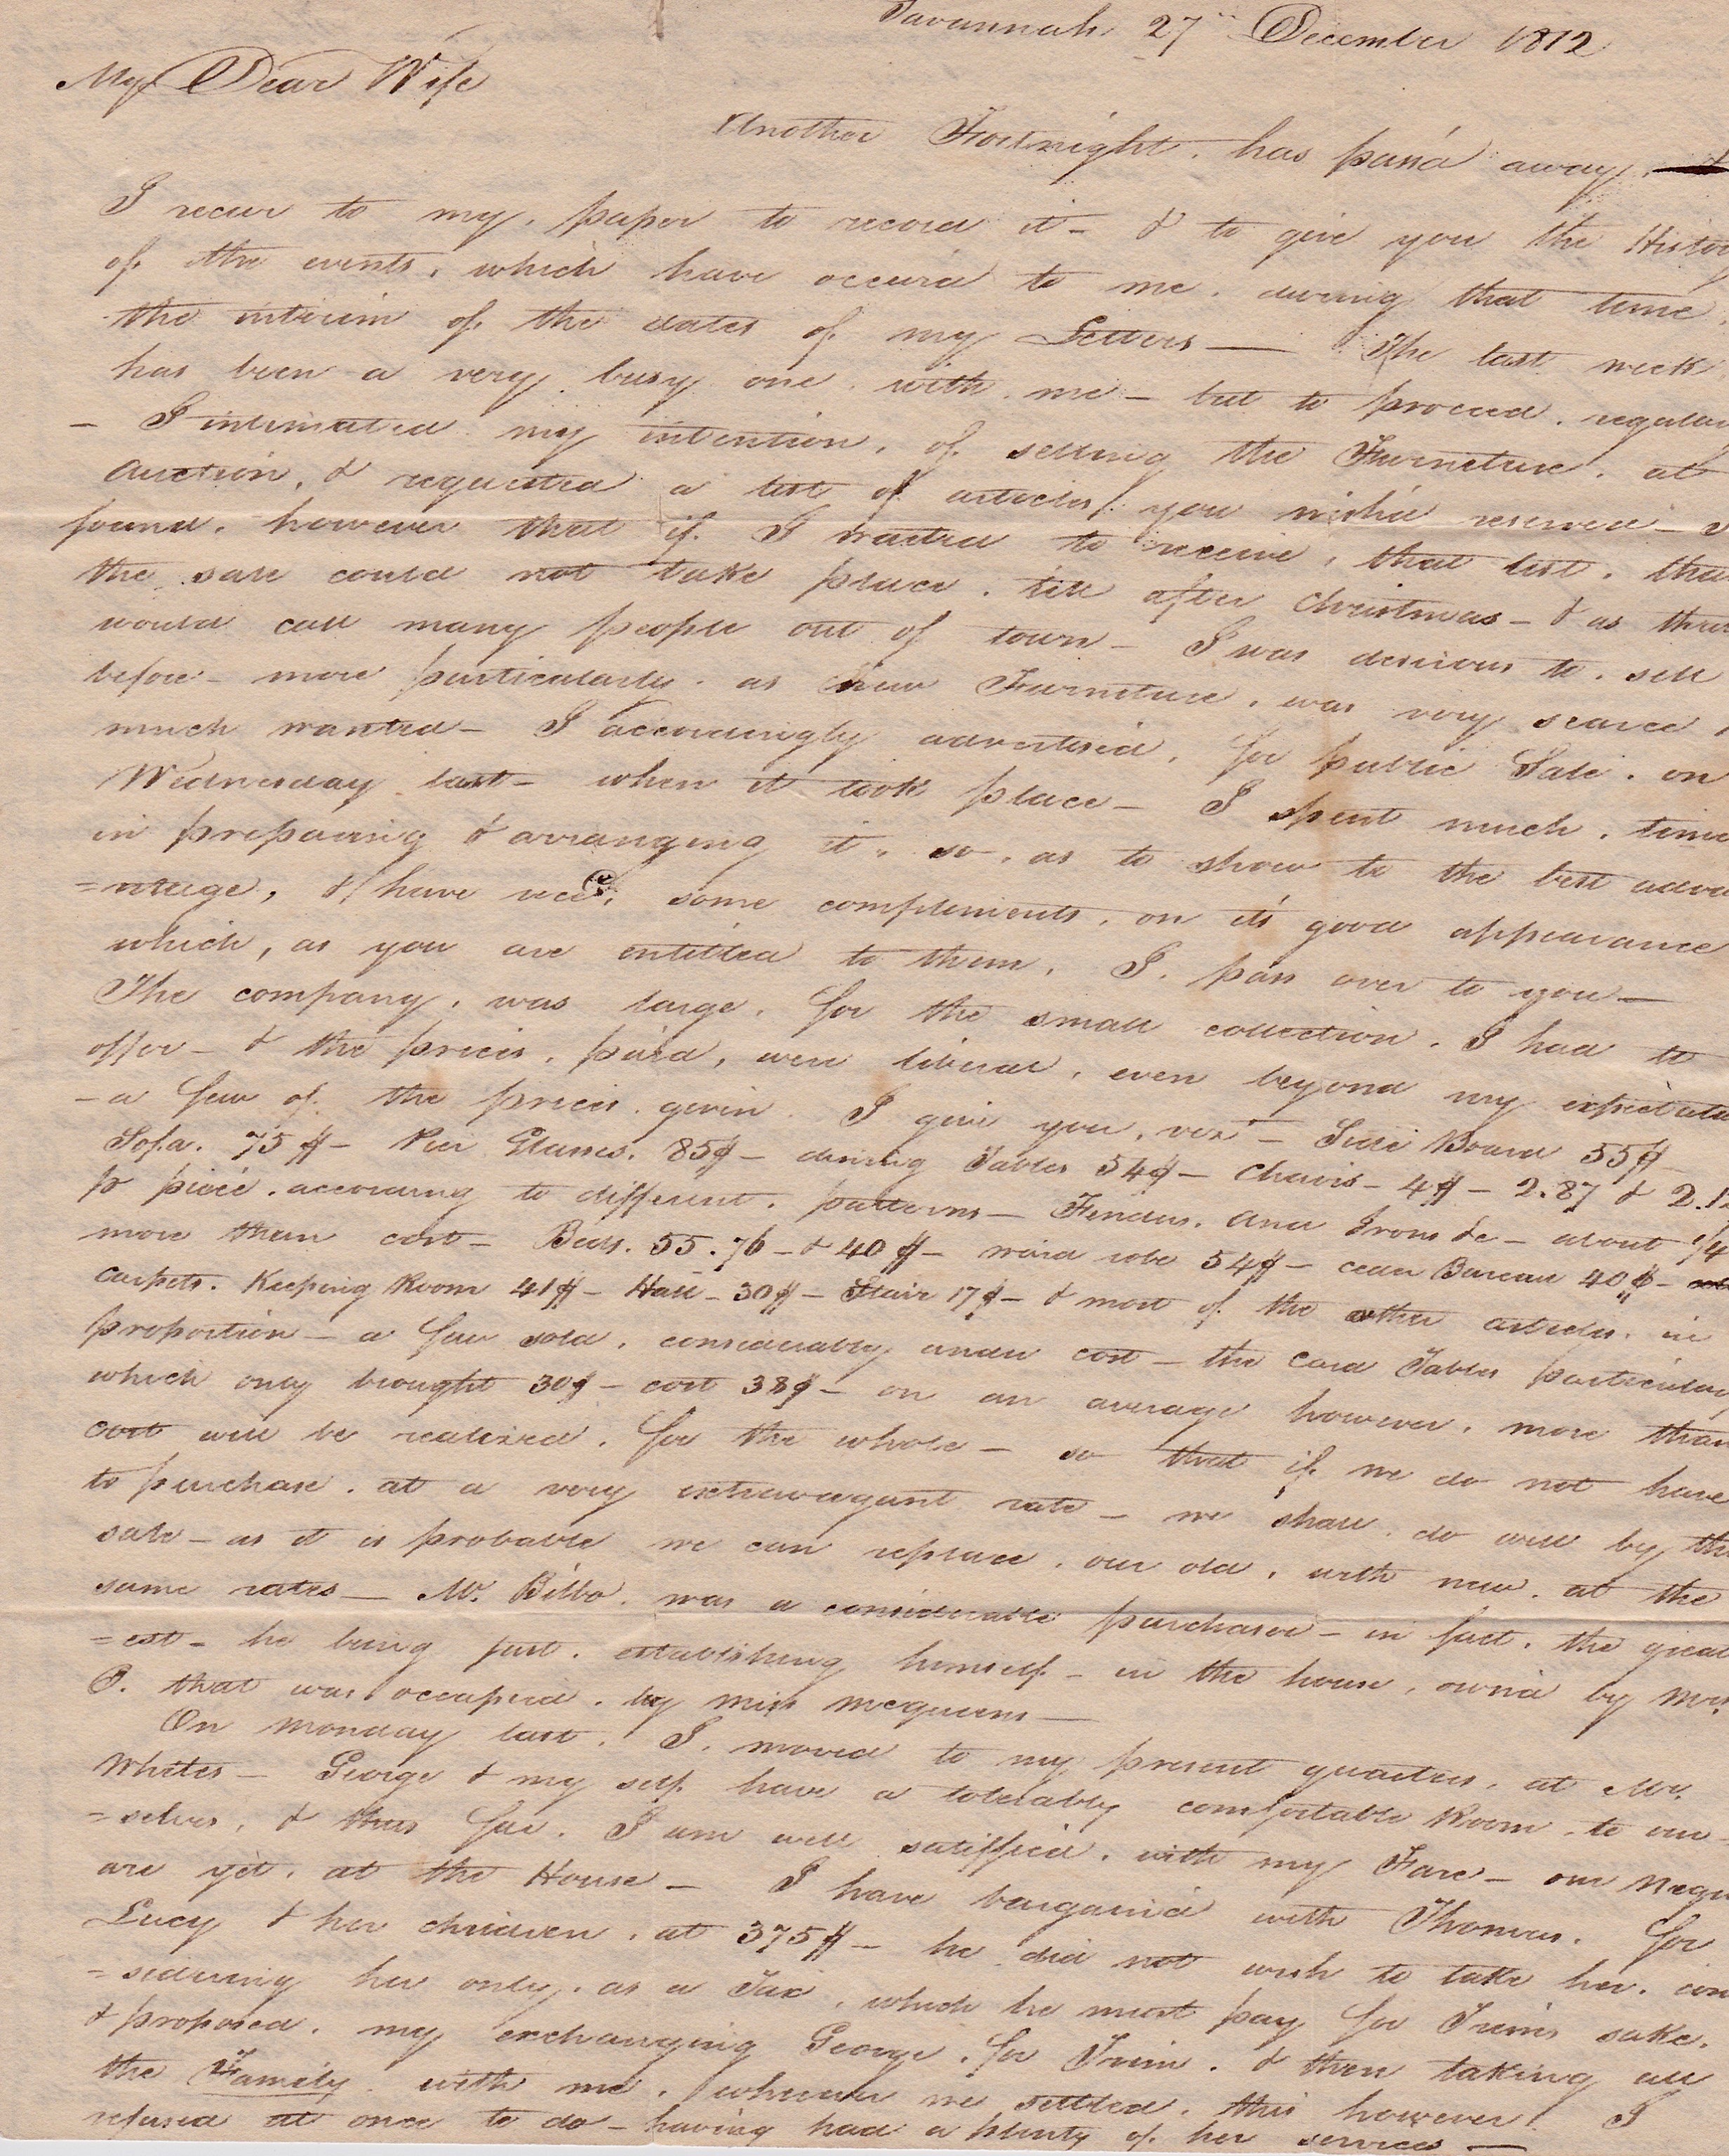 Savannah 27th December 1812
My Dear Wife
Another Fortnight. has pass'd away.
I recur to my. paper to record it - & to give you the Histor
of the events. which have occur'd to me. during that time.
the interim of the dates of my Letters — The last week
has been a very busy one. with. me - but to proceed. regular
- I intimated my intention. of selling the Furneture. at
auction, & requested a list of articles, you wish'd reserved -
found. however that if. I waited to receive, that list. tha
the sale could not take place. till after Christmas - & as
would call many people out of town - I was desirous to. sell
before - more particularly. as new Furneture. was very scarce
much wanted - I accordingly advertised. for public Sale. on
Wednesday last - when it took place - I spent much. time
in prepairing & arranging it. so. as to show to the best adva
=ntage, & have recd. some complements. on it's good appearance
which, as you are entitled to them. I. pass over to you —
The company. was large. for the small collection. I had to
offer - & the prices. paid, were liberal, even beyond my expectati
- a few of. the prices. given. I give you, vizt - Side Board 55$ -
Sofa. 75$ - Pier Glasses. 85$ - dinning Tables 54$ - Chairs - 4$ - 2.87 & 2.1
pr piece. according to different. patterns - Fenders. and Irons &c - about 1/4
more than cost - Beds. 55. 76 - & 40$ - ward robe 54$ - ceder Bureau 40$ -
carpets. Keeping Room 41$ - Hall - 30$ - Stair 17$ - & most of. the other articles. in
proportion - a few sold. considerably under cost - the Card Tables particular
which only brought 30$ - cost 38$ - on an average however. more than
cost will be realized. for the whole - so that if. we do not have
to purchase. at a very extravagant rate - we shall. do well by the
sale - as it is probable we can replace. our old. with new. at the
same rates — Mr. Bilbo. was a considerable purchaser - in fact. the great
=est - he being just. establishing himself - in the house, own'd by Mrs.
O. that was occupied. by Miss Mcqueens —
On Monday last. I. moved to my present quarters. at Mr.
Whites - George & my self have a tolerably comfortable Room. to our
=selves, & thus far. I am well satiffied. with my Fare - our Negr
are yet. at the House - I have bargain'd with Thomas. for
Lucy & her children. at 375$ - he did not wish to take her. con
=sidering her only. as a Tax, which he must pay for Trim's sake.
& proposed. my exchanging George. for Trim. & then taking all
the Family. with me. wherever we settled. this however. I
refused at once to do - having had a plenty of her services —